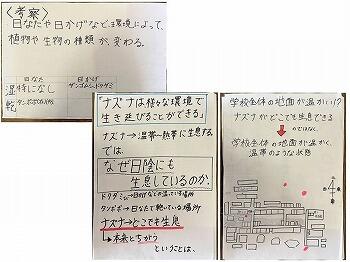 〈考察〉
日なたや日かげなど、環境によって、
植物や生物の種類が、変わる。
日なた
日かげ
湿
特になし
ダンゴムシ、ドクダミ
乾
「ナズナは様々な環境で
生き延びることができる」
ナズナ→温帯~熱帯に生息する
では、
なぜ日陰にも
生息しているのか。
ドクダミ→日かげなどの湿っている場所
タンポポ→日なたで乾いている場所
ナズナ→どこでも生息
本来とちがう
ということは、
学校全体の地面が温かい!?
ナズナがどこでも生息できる
学校全体の地面が温かく、
温帯のような状態